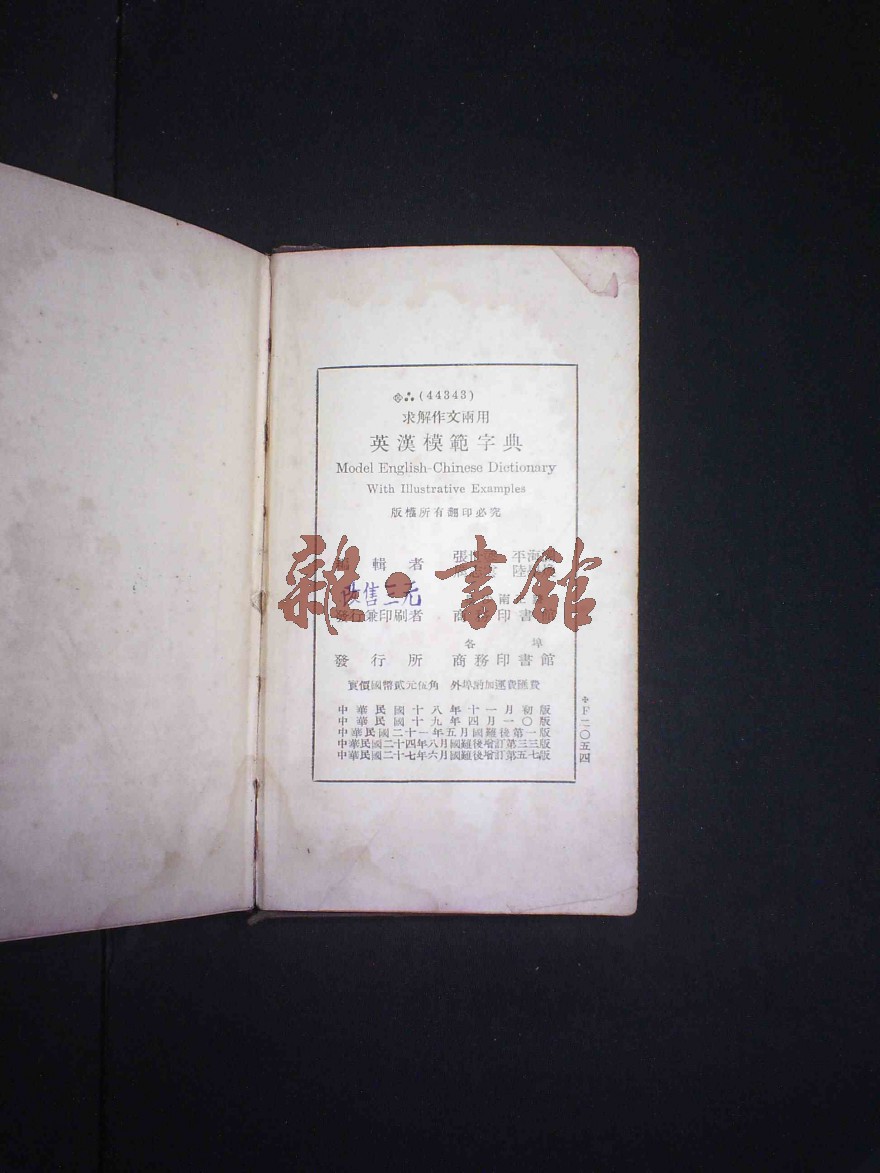 (44343)
求解作文兩用
英漢模範字典
Model English-Chinese Dictionary
With Illustrative Examples
版權所有翻印必究
輯者
張 平海
陸
改售三元
發行兼印刷者 商務印書館
各埠
發行所 商務印書館
實價國幣貳元伍角 外埠酌加運費匯費
中華民國十八年十一月初版
中華民國十九年四月一〇版
中華民國二十一年五月國難後第一版
中華民國二十四年八月國難後增訂第三三版
中華民國二十七年六月國難後增訂第五七版
F二〇五四
雜·書館